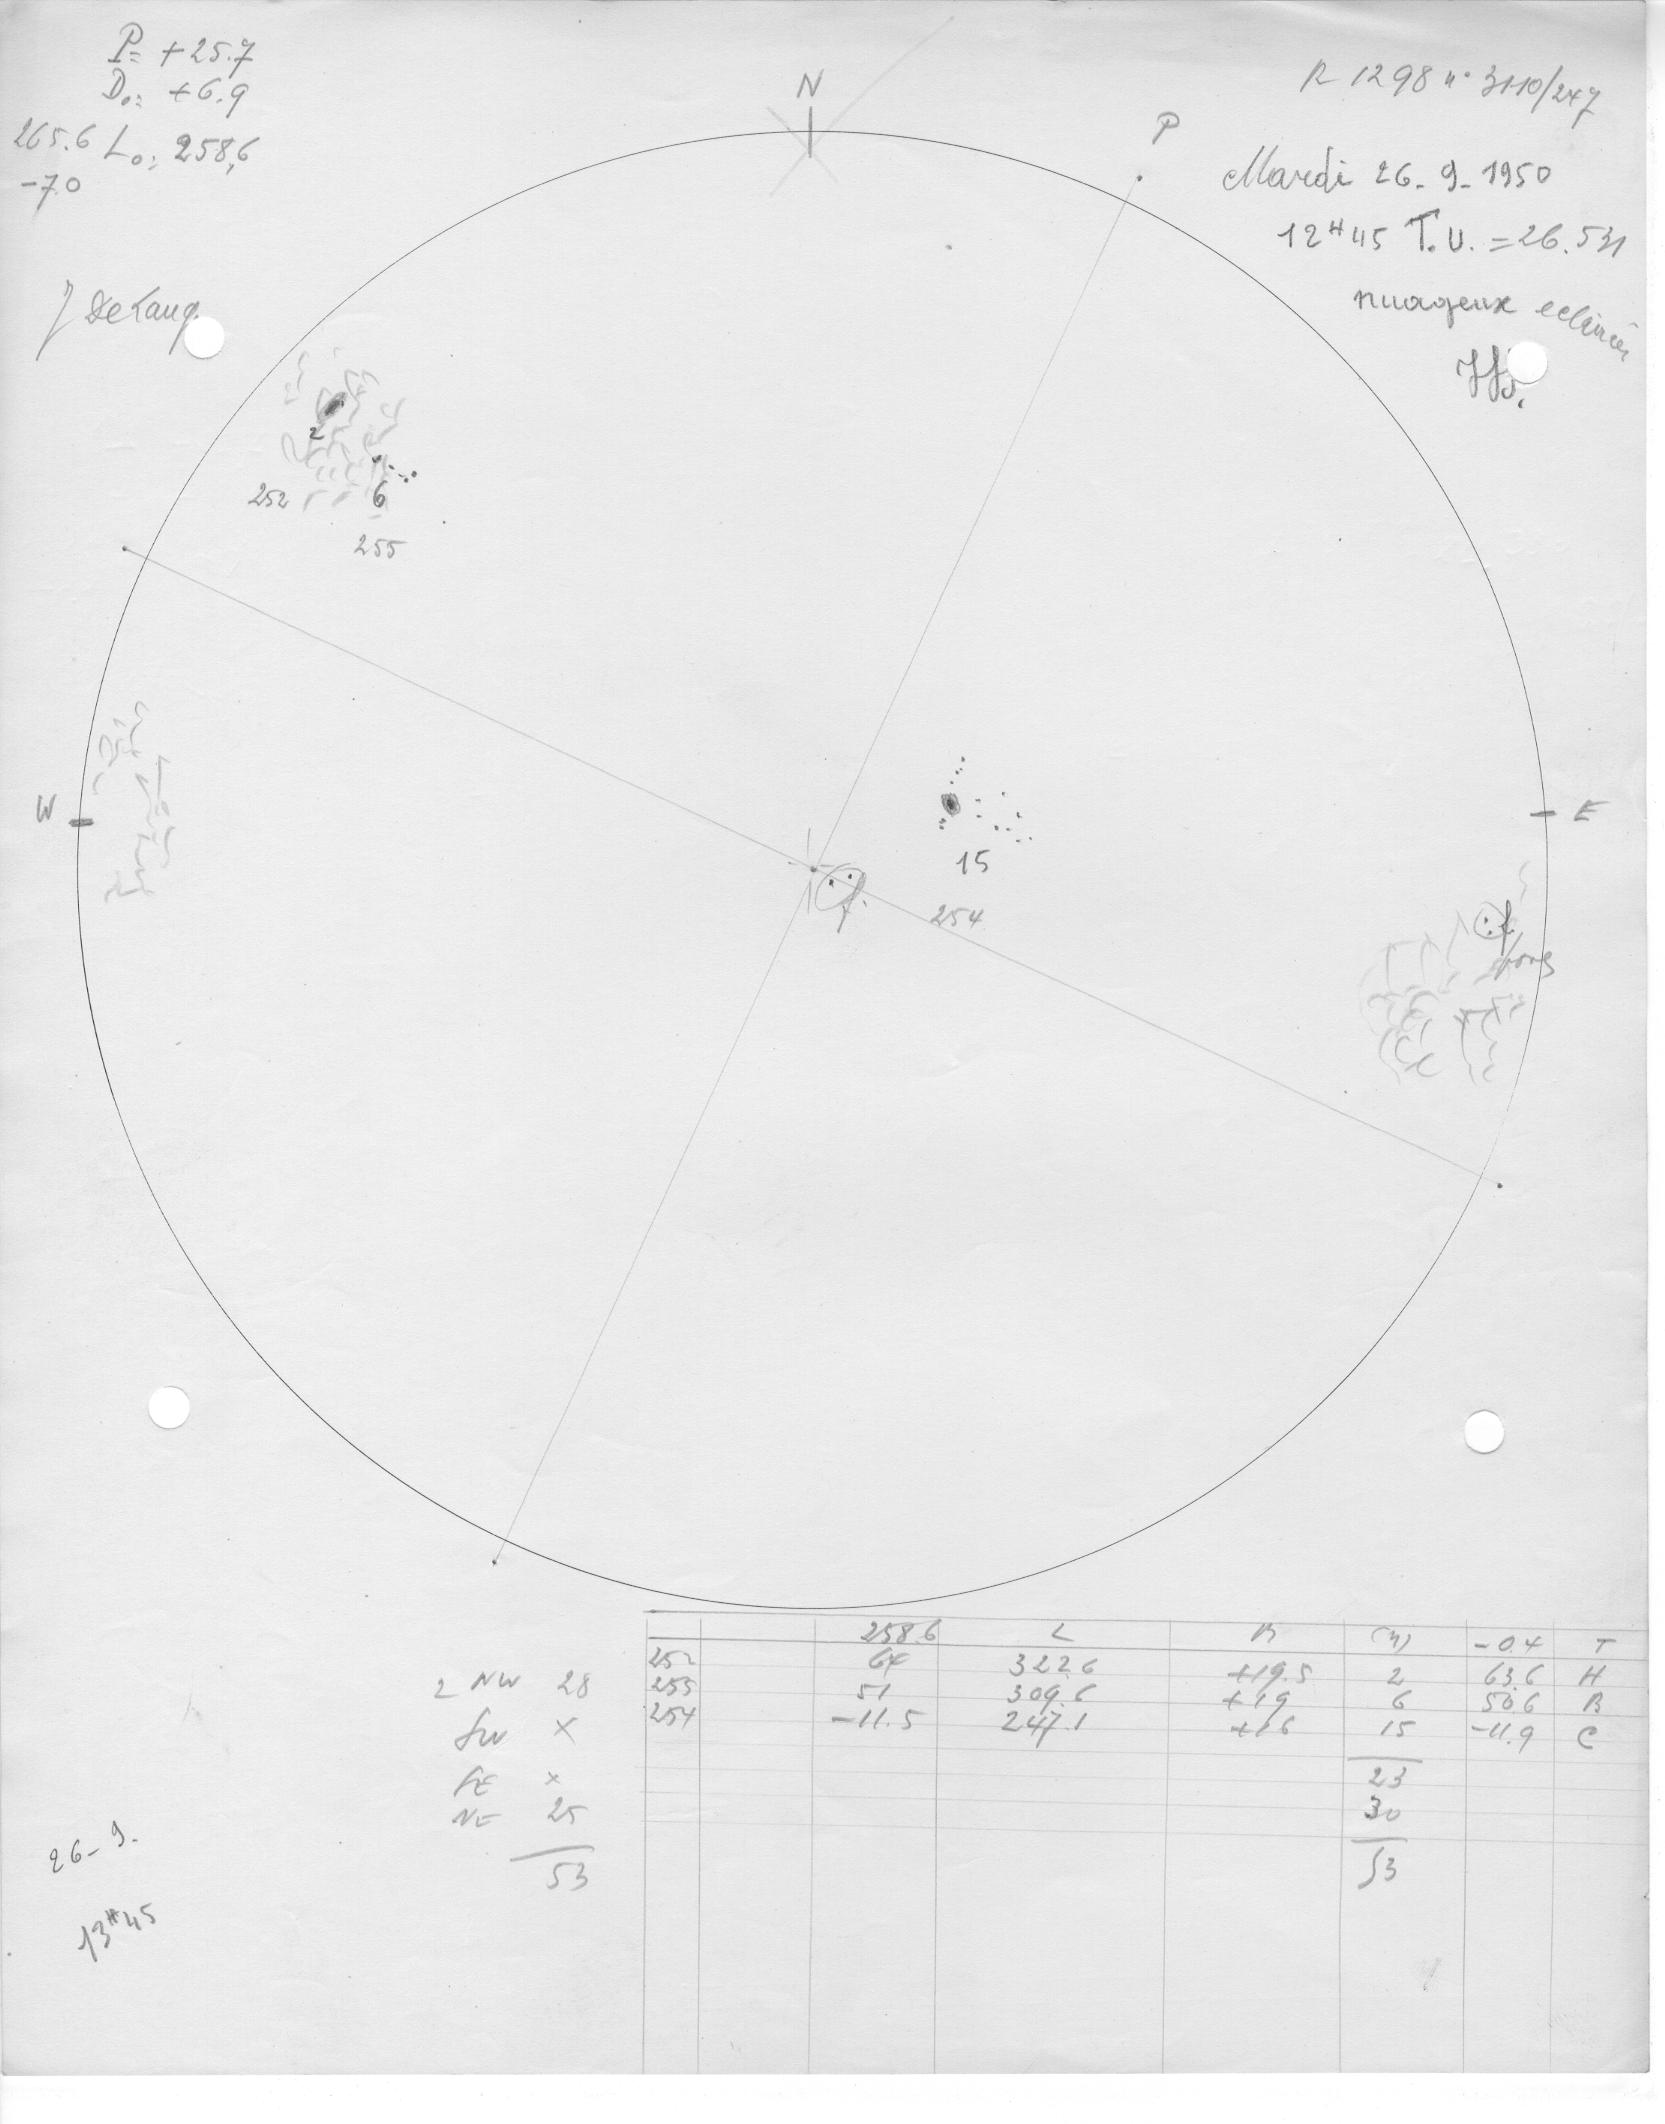 P= +25.7
D₀= +6.9
265.6 L₀: 258,6
-7.0
N
P
R 1298 n° 3110/247
Mardi 26-9-1950
12ᴴ45 T.U. =26.531
nuageux
2
252
6
255
W
E
15
254
f
f
258.6 L B (n) -0.4 T
252 64 322.6 +19.5 2 63.6 H
255 51 309.6 +19 6 50.6 B
254 -11.5 247.1 +16 15 -11.9 C
23
30
53
2 NW 28
SW X
SE X
NE 25
53
26-9.
13ᴴ45